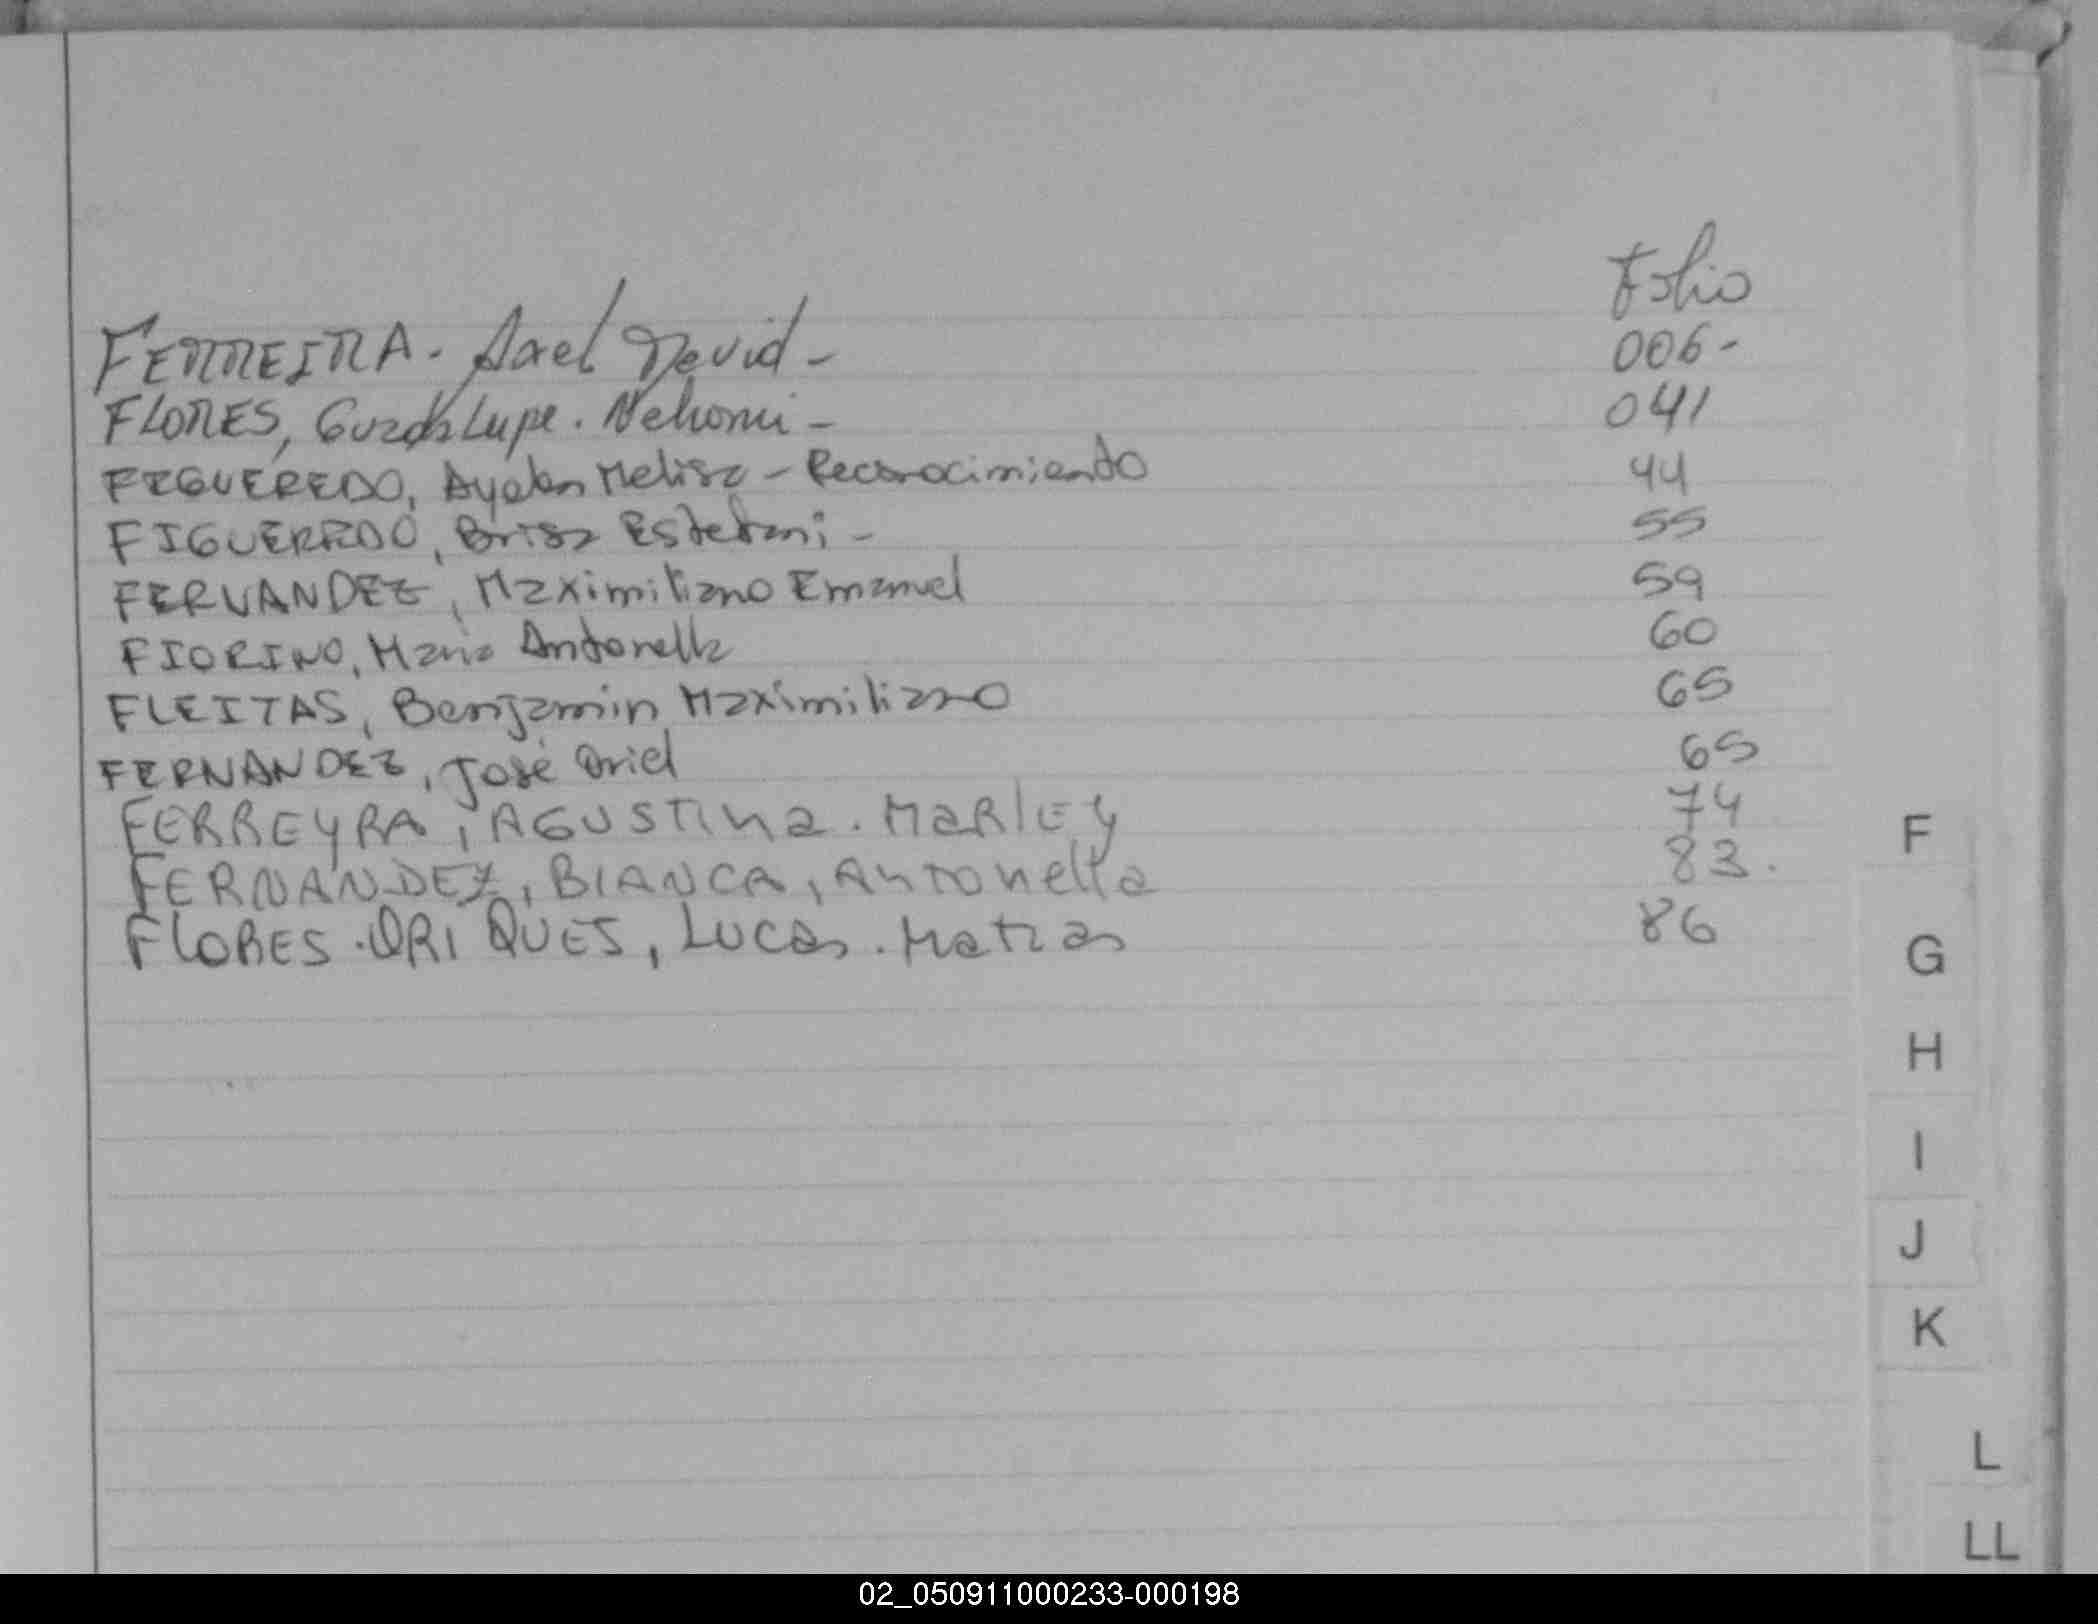 Folio
FERREIRA - Axel David - 006-
FLORES, Guadalupe. Nehomi - 041
FIGUEREDO, Ayelen Melisa - Reconocimiento 44
FIGUEREDO, Brisa Estefani - 55
FERNANDEZ, Maximiliano Emanuel 59
FIORINO, Maria Antonella 60
FLEITAS, Benjamin Maximiliano 65
FERNANDEZ, José Oriel 65
FERREYRA, AGUSTina. MaRlEy 74
FERNANDEZ, BIANCA, Antonella 83.
FLORES. ORIQUES, Lucas. Matias 86
F
G
H
I
J
K
L
LL
02_050911000233-000198